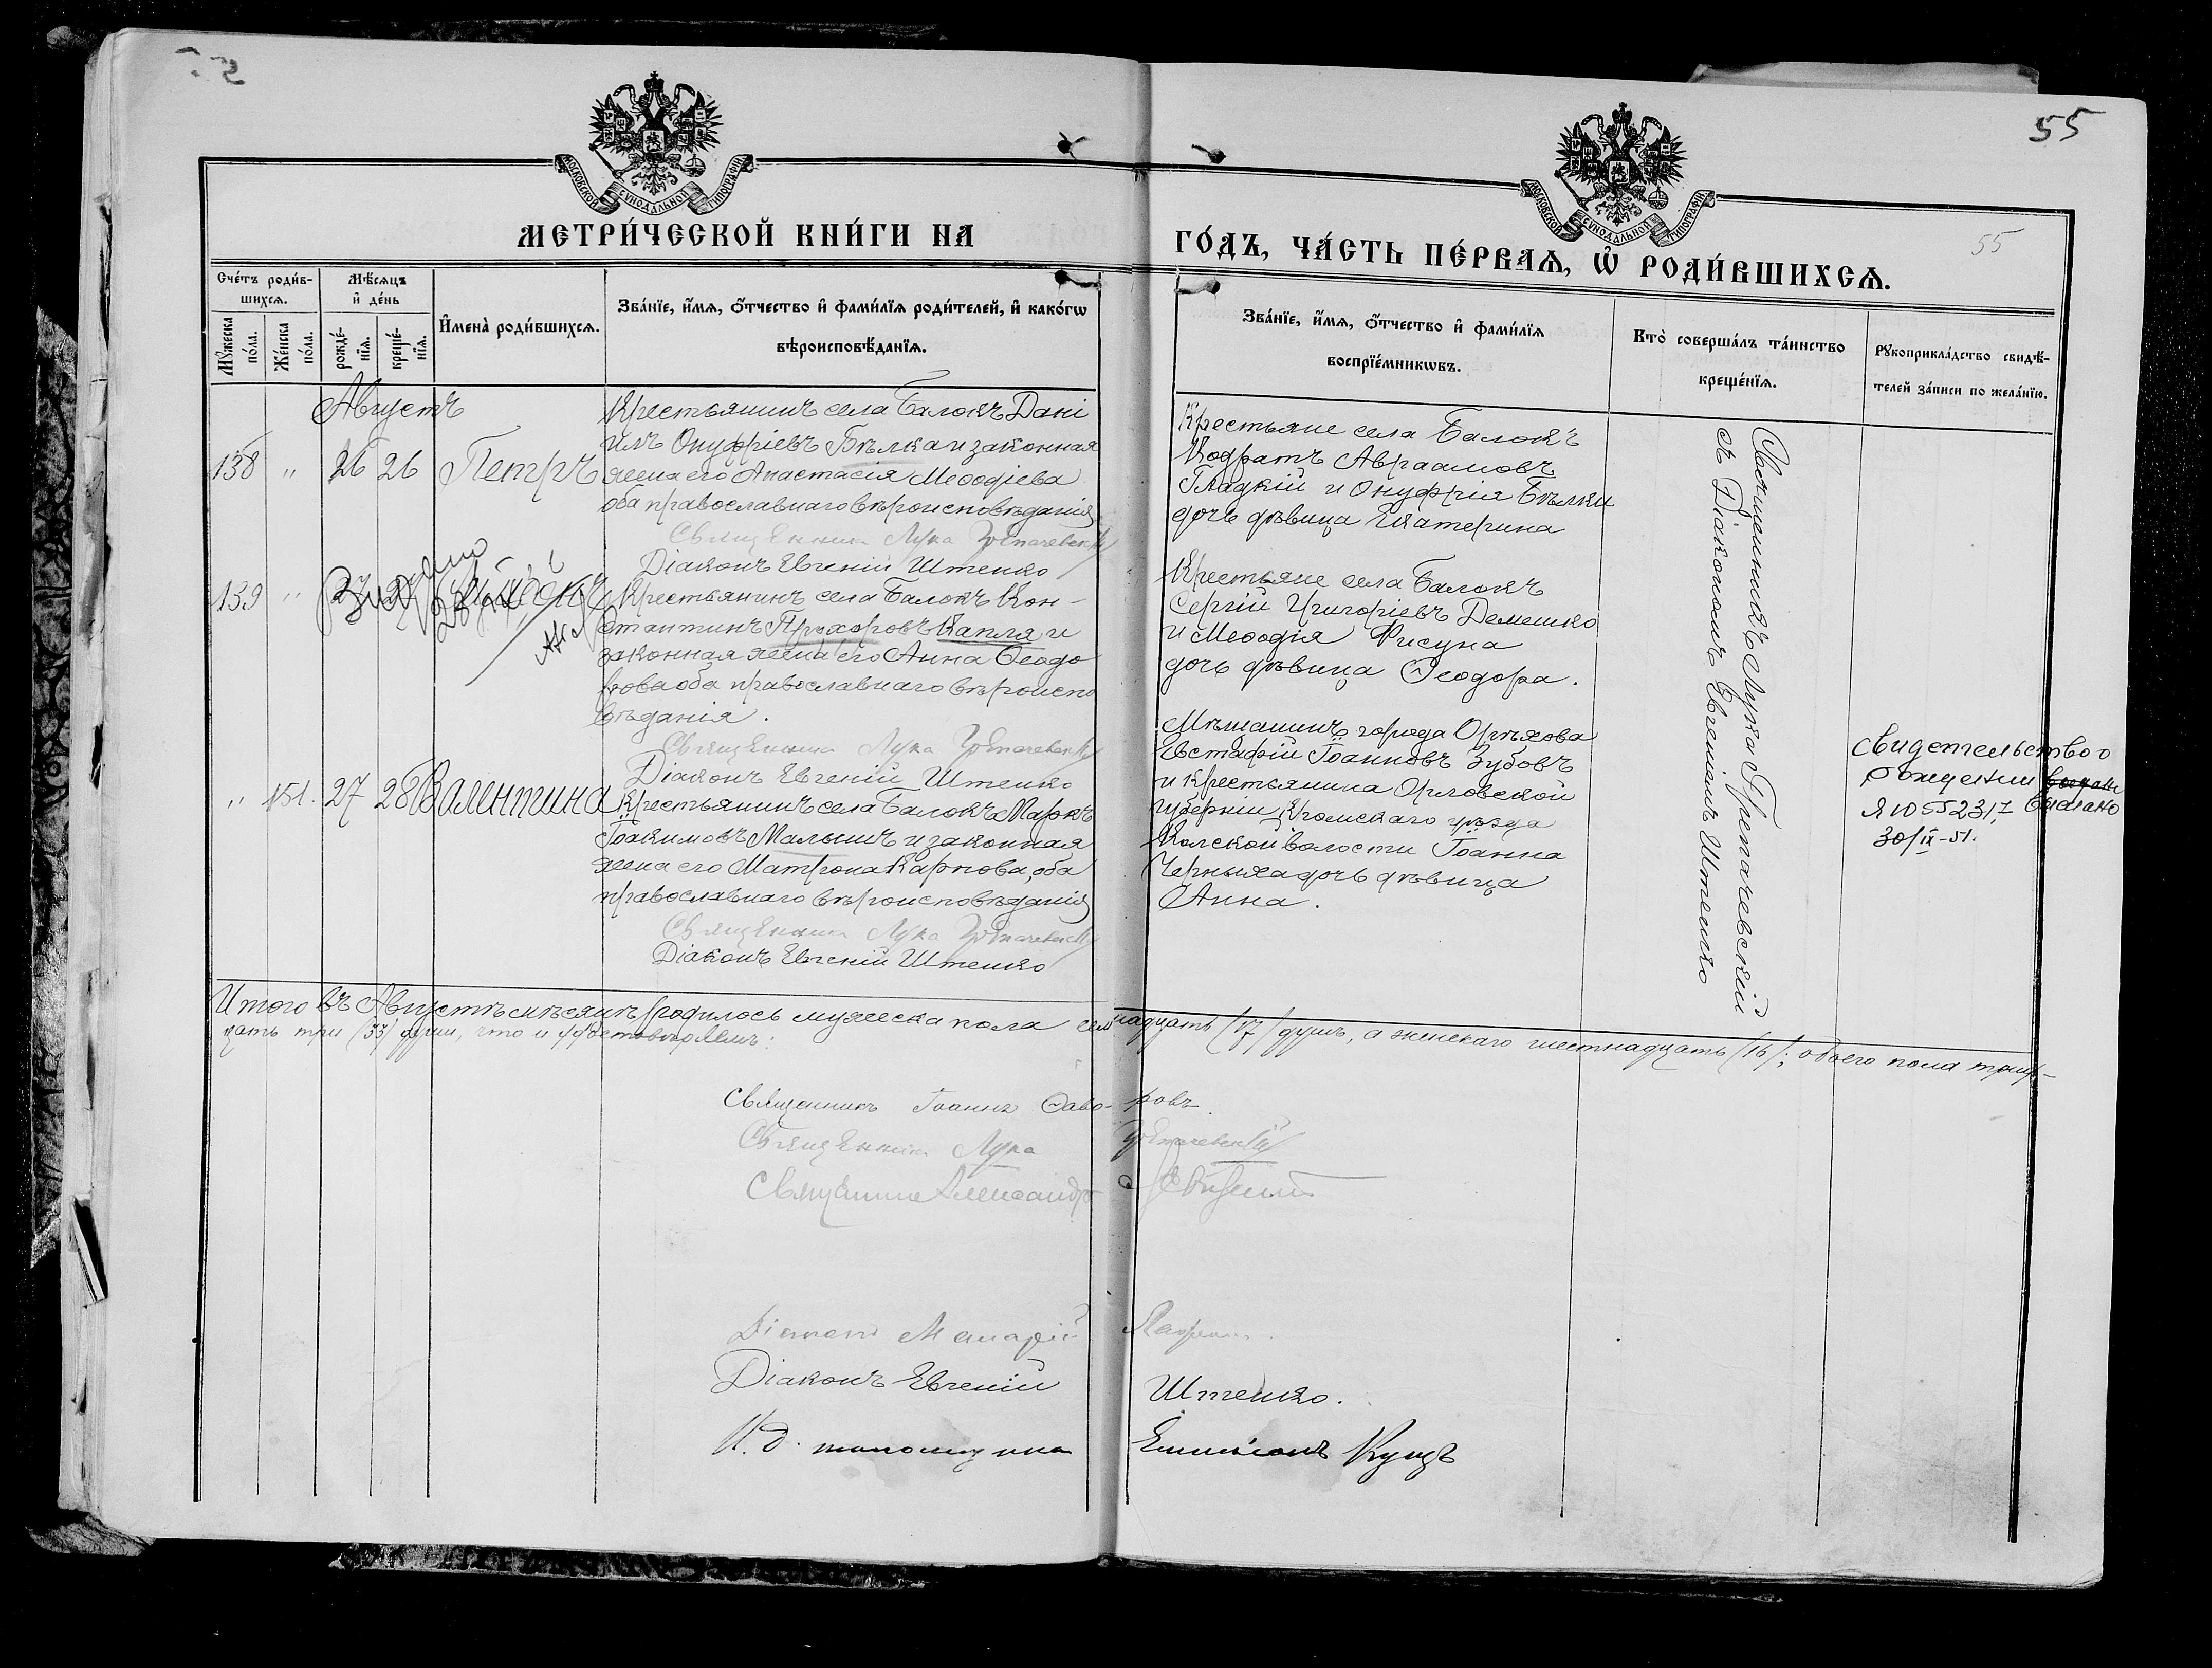 55
55
МОСКОВСКОЙ СѴНОДАЛЬНОЙ ТИПОГРАФІИ
МОСКОВСКОЙ СѴНОДАЛЬНОЙ ТИПОГРАФІИ
МЕТРИ́ЧЕСКОЙ КНИ́ГИ НА
ГО́ДЪ, ЧА́СТЬ ПЕ́РВАѦ, Ѽ РОДИ́ВШИХСѦ.
Сче́тъ роди́в-
шихсѧ.
Мѣ́сѧцъ
и҆ де́нь
Мꙋ́жеска
по́ла.
Же́нска
по́ла.
рожде́-
нїѧ.
креще́-
нїѧ.
И҆мена̀ роди́вшихсѧ.
Зва́нїе, и҆́мѧ, ѻ҆́тчество и҆ фами́лїѧ роди́телей, и҆ како́гѡ
вѣроисповѣ́данїѧ.
Зва́нїе, и҆́мѧ, ѻ҆́тчество и҆ фами́лїѧ
воспрїе́мникѡвъ.
Кто̀ соверша́лъ та́инство
креще́нїѧ.
Рꙋкоприкла́дство свидѣ́-
телей за́писи по жела́нїю.
Августъ
138 " 26 26 Петръ
Крестьянинъ села Балокъ Дані
илъ Онуфріевъ Бѣлка и законная
жена его Анастасія Меѳодіева
оба православнаго вѣроисповѣданія
Священникъ Лука Грепачевскій
Діаконъ Евгеній Штенко
Крестьяне села Балокъ
Кодратъ Авраамовъ
Гладкій и Онуфрія Бѣлки
дочь дѣвица Екатерина
139 "
Крестьянинъ села Балокъ Кон-
стантинъ Прохоровъ Капля и
законная жена его Анна Ѳеодо
рова оба православнаго вѣроиспо
вѣданія.
Священникъ Лука Грепачевскій
Діаконъ Евгеній Штенко
Крестьяне села Балокъ
Сергій Григоріевъ Демешко
и Меѳодія Фисуна
дочь дѣвица Ѳеодора.
" 151. 27 28 Валентина
Крестьянинъ села Балокъ Маркъ
Іоакимовъ Малышъ и законная
жена его Матрона Карпова, оба
православнаго вѣроисповѣданія
Священникъ Лука Грепачевскій
Діаконъ Евгеній Штенко
Мѣщанинъ города Орѣхова
Евстафій Іоанновъ Зубовъ
и крестьянина Орловской
губерніи, Кромскаго уѣзда
волости Іоанна
Черныха дочь дѣвица
Анна.
Священникъ Лука Грепачевскій
съ Діакономъ Евгеніемъ Штенко
Свидетельство о
рождении
ЯЮ 552317 выдано
30/IX-51.
Итого въ Августѣ мѣсяцѣ родилось мужеска пола семнадцать /17/ душъ, а женскаго шестнадцать /16/; обоего пола трид-
цать три /33/ души, что и удостовѣряемъ:
Священникъ Іоаннъ
Священникъ Лука Грепачевскій
Священникъ Александръ
Діаконъ Макарій
Діаконъ Евгеній Штенко.
И. д. псаломщика Куцъ